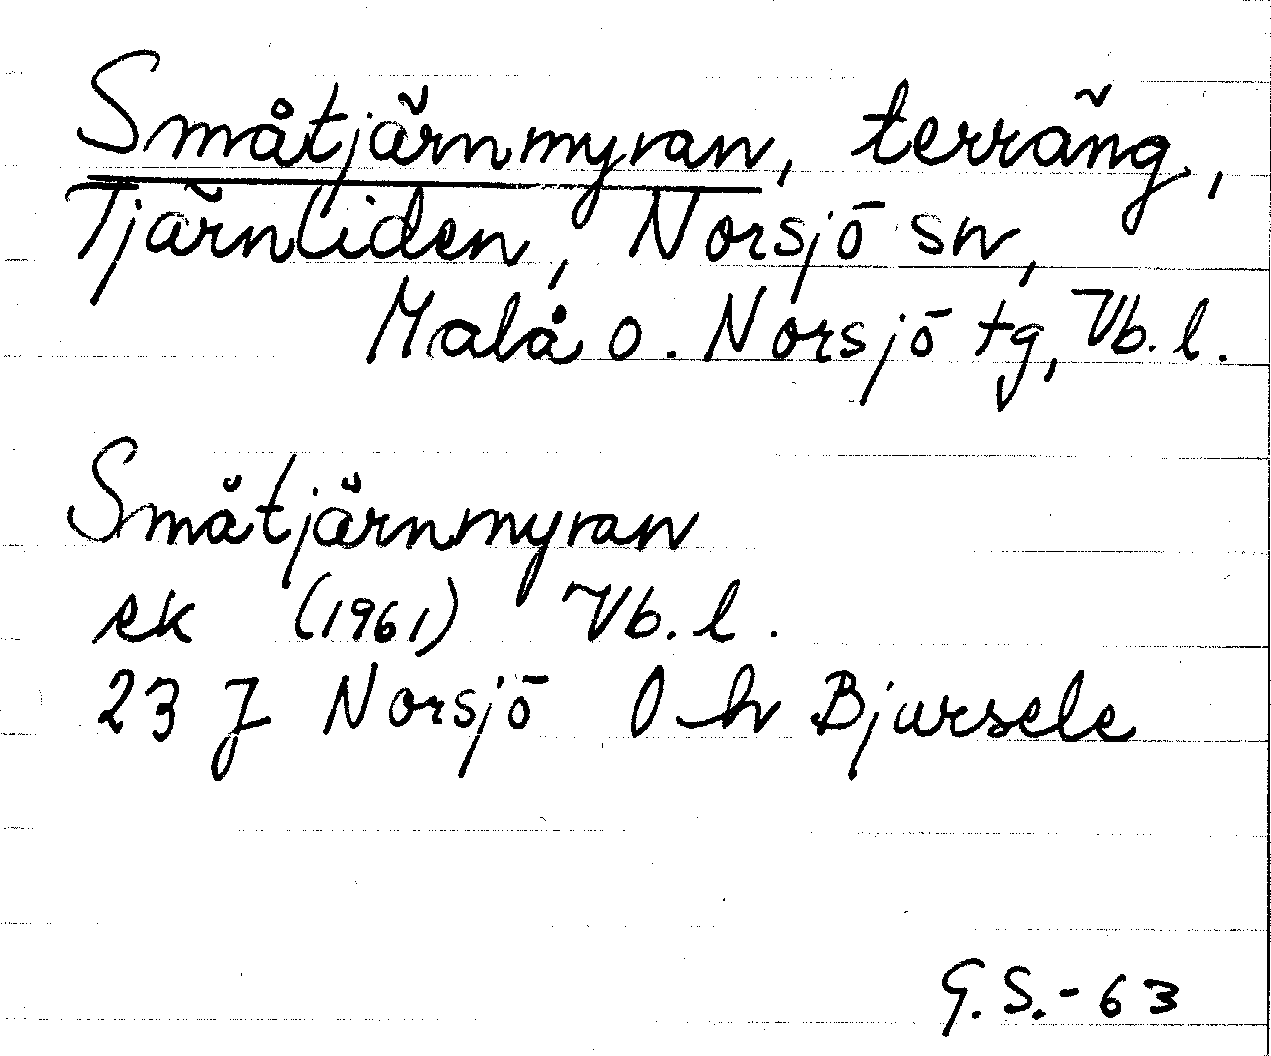 Småtjärnmyran, terräng,
Tjärnliden, Norsjö sn,
Malå o. Norsjö tg, Vb. l.
Småtjärnmyran
ek (1961) Vb. l.
23 J Norsjö 0-h Bjursele
G.S.-63